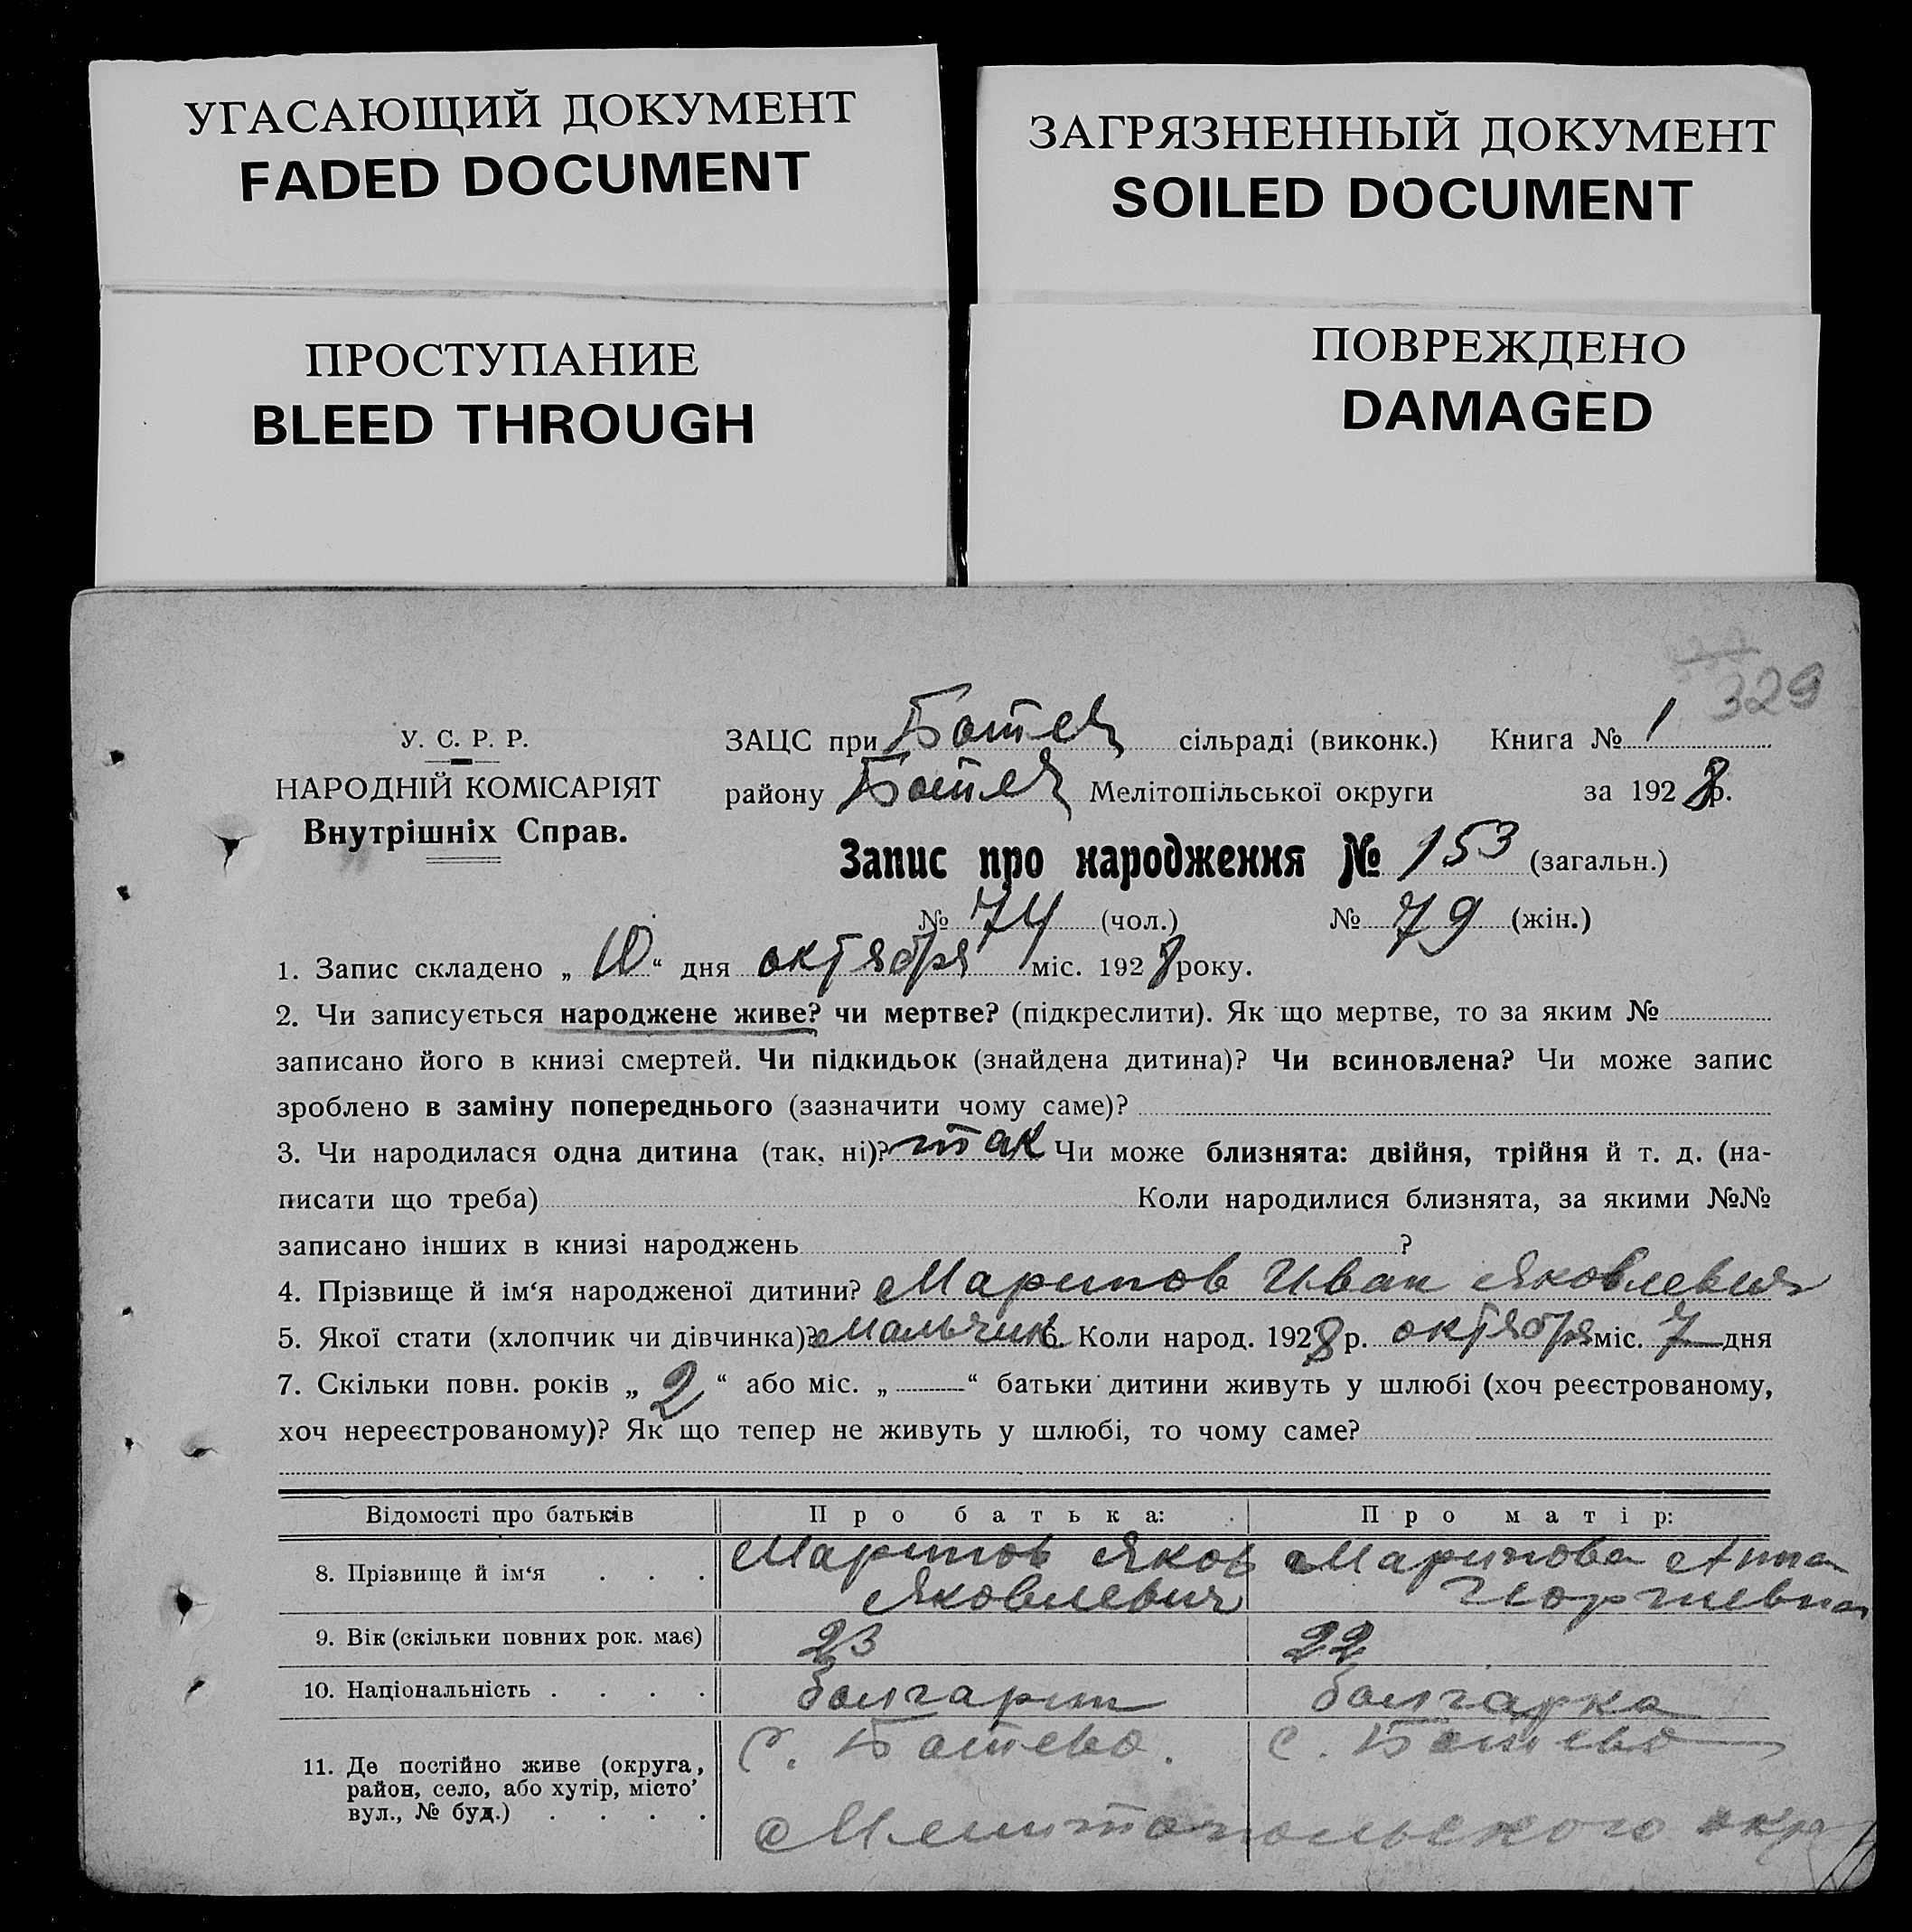 УГАСАЮЩИЙ ДОКУМЕНТ
FADED DOCUMENT
ЗАГРЯЗНЕННЫЙ ДОКУМЕНТ
SOILED DOCUMENT
ПРОСТУПАНИЕ
BLEED THROUGH
ПОВРЕЖДЕНО
DAMAGED
329
У. С. Р. Р.
НАРОДНІЙ КОМІСАРІЯТ
Внутрішніх Справ.
ЗАЦС при Ботев сільраді (виконк.) Книга № 1
району Ботев Мелітопільської округи за 1928 р.
Запис про народження № 153 (загальн.)
№ 74 (чол.) № 79 (жін.)
1. Запис складено „ 10 “ дня октября міс. 1928 року.
2. Чи записується народжене живе? чи мертве? (підкреслити). Як що мертве, то за яким №
записано його в книзі смертей. Чи підкидьок (знайдена дитина)? Чи всиновлена? Чи може запис
зроблено в заміну попереднього (зазначити чому саме)?
3. Чи народилася одна дитина (так, ні)? так Чи може близнята: двійня, трійня й т. д. (на-
писати що треба) Коли народилися близнята, за якими №№
записано інших в книзі народжень ?
4. Прізвище й ім‘я народженої дитини? Маринов Иван Яковлевич
5. Якої стати (хлопчик чи дівчинка)? Мальчик 6. Коли народ. 1928 р. октября міс. 7 дня
7. Скільки повн. років „ 2 “ або міс. „ “ батьки дитини живуть у шлюбі (хоч реєстрованому,
хоч нереєстрованому)? Як що тепер не живуть у шлюбі, то чому саме?
Відомості про батьків Про батька: Про матір:
8. Прізвище й ім‘я . . . Маринов Яков Маринова Анна
Яковлевич Георгиевна
9. Вік (скільки повних рок. має) 23 22
10. Національність . . . . болгарин болгарка
11. Де постійно живе (округа, с. Ботево. с. Ботево
район, село, або хутір, місто’
вул., № буд.) . . . . Мелитопольского окр